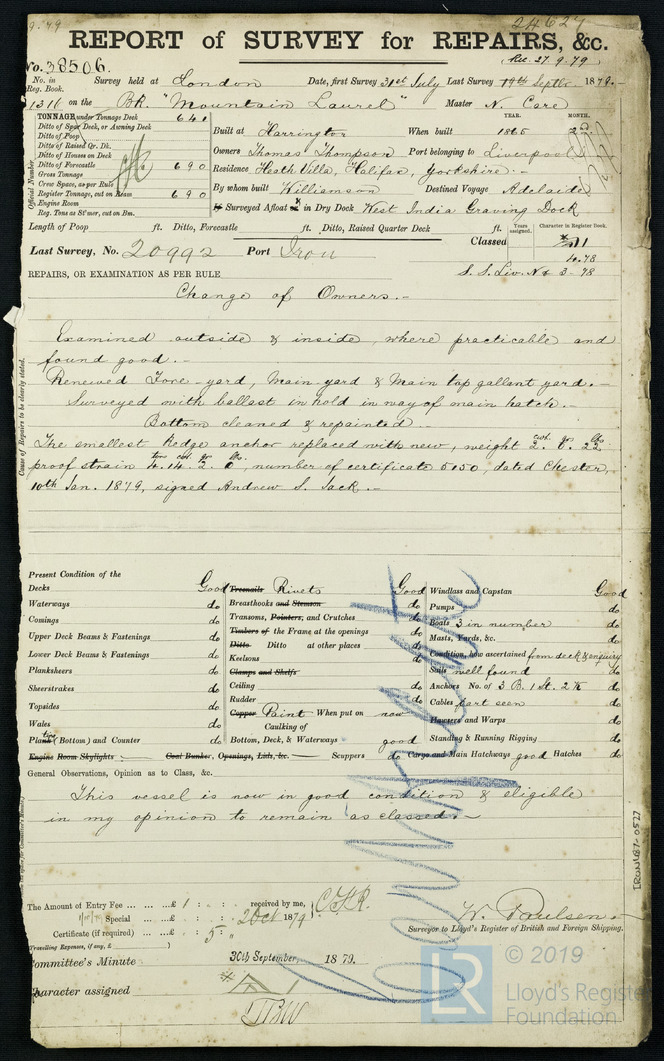 9.79
24627
REPORT of SURVEY for REPAIRS, &c.
No. 38506.
Rec. 27.9.79
No. in Reg. Book.
Survey held at London Date, first Survey 31st July Last Survey 19th Septr. 1879.
1316 on the Bk. "Mountain Laurel" Master N. Care
TONNAGE under Tonnage Deck 641
Ditto of Spar Deck, or Awning Deck
Ditto of Poop
Ditto of Raised Qr. Dk.
Ditto of Houses on Deck
Ditto of Forecastle
Gross Tonnage 690
Crew Space, as per Rule
Register Tonnage, cut on Beam 690
Engine Room
Reg. Tons as St'mer, cut on Bm.
Official Number
YEAR. MONTH.
Built at Harrington When built 1865
Owners Thomas Thompson Port belonging to Liverpool
Residence Heath Villa, Halifax, Yorkshire.
By whom built Williamson Destined Voyage Adelaide
If Surveyed Afloat or in Dry Dock West India Graving Dock
Length of Poop ft. Ditto, Forecastle ft. Ditto, Raised Quarter Deck ft.
Years assigned. Character in Register Book.
Last Survey, No. 20992 Port Iron
Classed
4.78
S. S. Liv. No 3 - 78
REPAIRS, OR EXAMINATION AS PER RULE
Change of Owners.-
Cause of Repairs to be clearly stated.
Examined outside & inside, where practicable and
found good.-
Renewed Fore-yard, Main yard & Main top gallant yard.-
Surveyed with ballast in hold in way of main hatch.-
Bottom cleaned & repainted.
The smallest Kedge anchor replaced with new, weight 2. 0. 22
cwt. qr. lbs.
proof strain 4. 14. 2. 0, number of certificate 5050, dated Chester,
10th Jan. 1879, signed Andrew S. Jack.-
Present Condition of the
Decks Good
Waterways do
Comings do
Upper Deck Beams & Fastenings do
Lower Deck Beams & Fastenings do
Planksheers do
Sheerstrakes do
Topsides do
Wales do
Plank (Bottom) and Counter do
Engine Room Skylights
Treenails Rivets Good
Breasthooks and Stemson do
Transoms, Pointers, and Crutches do
Timbers of the Frame at the openings do
Ditto Ditto at other places do
Keelsons do
Clamps and Shelfs
Ceiling do
Rudder do
Copper Paint When put on now
Caulking of
Bottom, Deck, & Waterways good
Coal Bunker, Openings, Lids, &c. Scuppers do
Windlass and Capstan Good
Pumps do
Boats 3 in number do
Masts, Yards, &c. do
Condition, how ascertained from deck & enquiry
Sails well found do
Anchors No. of 3 B. 1 St. 2 K do
Cables part seen do
Hawsers and Warps do
Standing & Running Rigging do
Cargo and Main Hatchways good Hatches do
General Observations, Opinion as to Class, &c.
This vessel is now in good condition & eligible
in my opinion to remain as classed.-
The Amount of Entry Fee £ 1 : : received by me,
Special : :
2 Oct 1879
Certificate (if required) 5
Travelling Expenses, if any, £
W. Paulsen
Surveyor to Lloyd's Register of British and Foreign Shipping.
Committee's Minute 30th September, 1879.
Character assigned
IRON487-0527
© 2019
LR
Lloyd's Register
Foundation